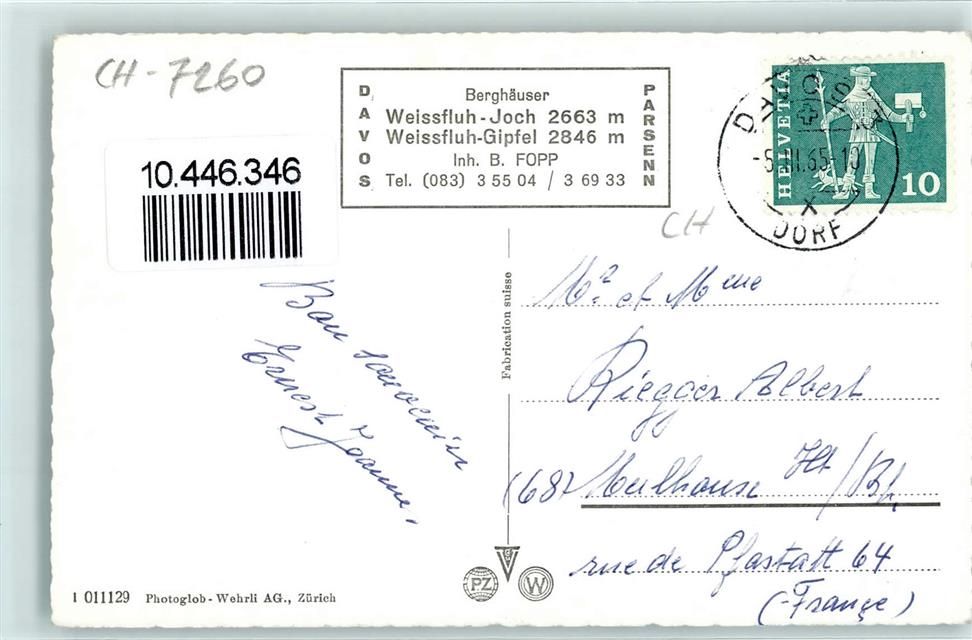 CH-7260
DAVOS
Berghäuser
Weissfluh-Joch 2663 m
Weissfluh-Gipfel 2846 m
Inh. B. FOPP
Tel. (083) 3 55 04 / 3 69 33
PARSENN
HELVETIA
10
DAVOS
-6.III.65-10
DORF
10.446.346
CH
Bon souvenir
Ernest Jeanne.
Fabrication suisse
Mr. et Mme
Riegger Albert
(68) Mulhouse Ht/Rh.
rue de Pfastatt 64
(France)
PZ
W
1 011129 Photoglob-Wehrli AG., Zürich